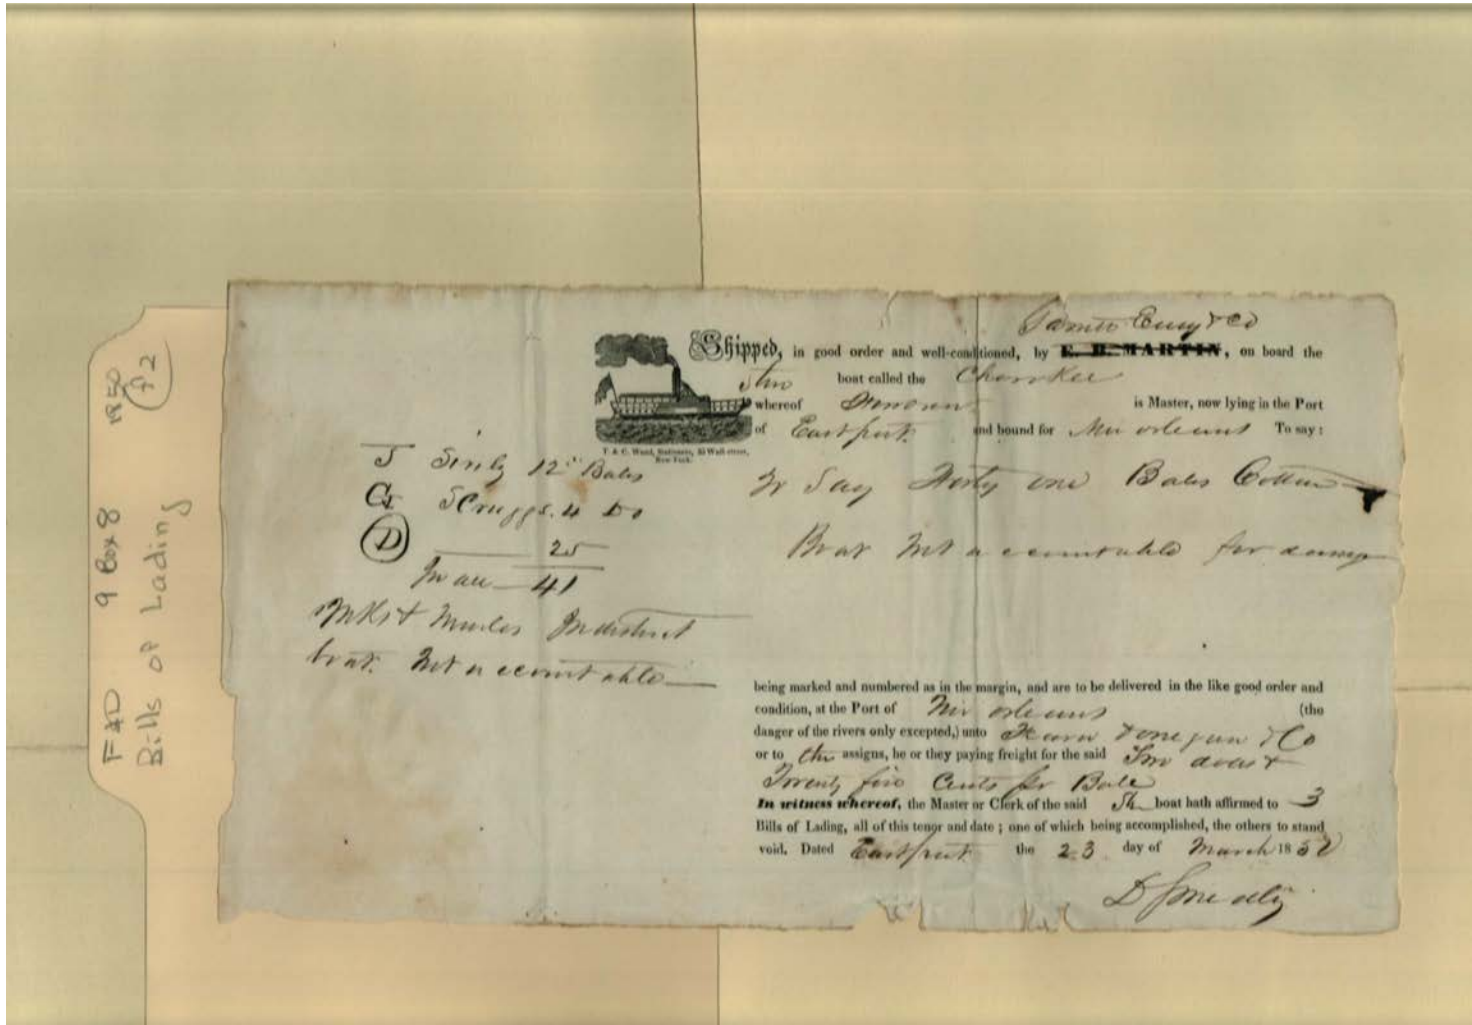 FHD 9 Box 8 1850
Bills of Lading f2
& Co
Shipped, in good order and well-conditioned, by E. H. MARTIN, on board the
boat called the Cherokee
whereof is Master, now lying in the Port
of Eastport and bound for New orleans To say:
T. & C. Wood, Stationers, Wall street,
New York.
J 12 Bales
G Scruggs. 4 Do
D 25
In all 41
Boat not accountable
To Say Forty one Bales Cotton
Boat not accountable for
being marked and numbered as in the margin, and are to be delivered in the like good order and
condition, at the Port of New orleans (the
danger of the rivers only excepted,) unto & Co
or to assigns, he or they paying freight for the said
Twenty five Cents pr Bale
In witness whereof, the Master or Clerk of the said St boat hath affirmed to 3
Bills of Lading, all of this tenor and date; one of which being accomplished, the others to stand
void. Dated Eastport the 23 day of March 1850